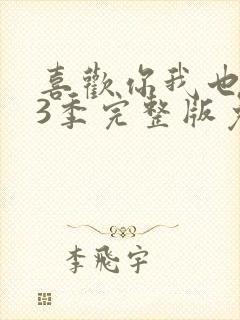 喜歡你我也
3季完整版
李飛宇